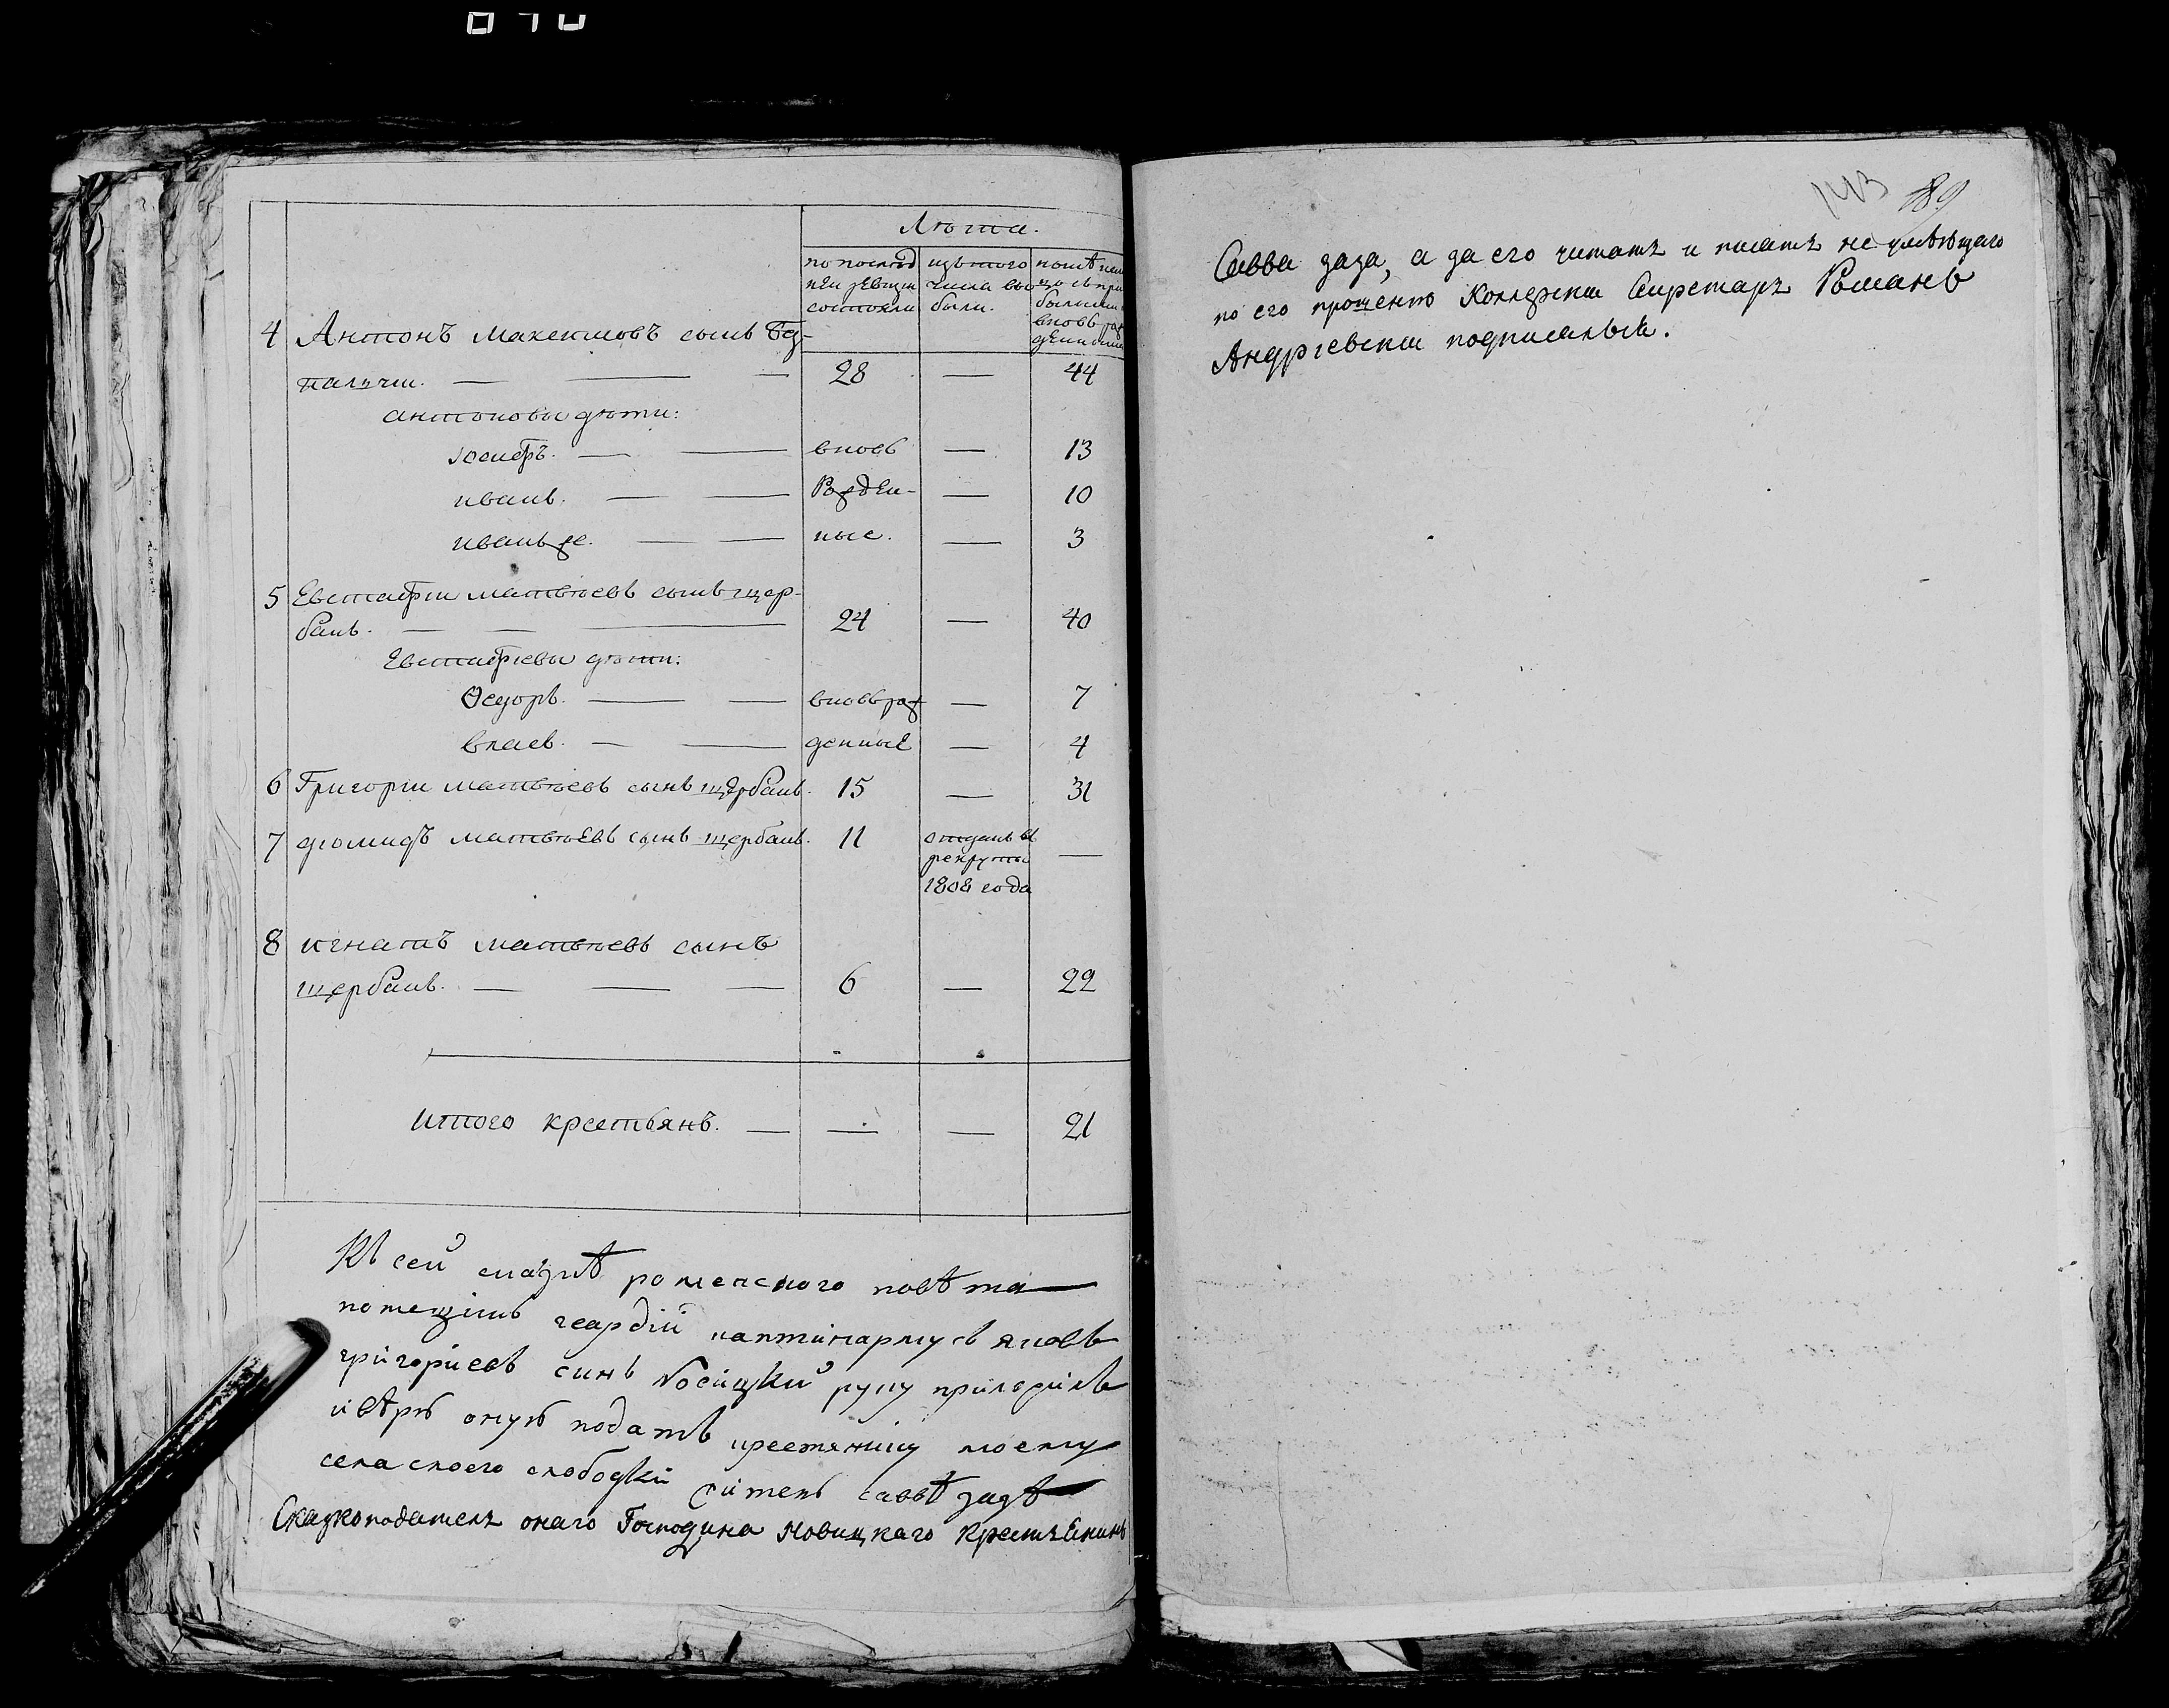 Лѣта.
по послѣд
ней ревизіи
состояли
изъ того
числа вы
были.
вновь
4 Антонъ Максимовъ сынъ Без-
палчій. — — — 28 — 44
антоновы дѣти:
Іосифъ. — — вновь — 13
иванъ. — — Рожден- — 10
иванъ же. — — ные. — 3
5 Евстафій матвѣевъ сынъ щер-
банъ. — — — 24 — 40
Евстафіевы дѣти:
Ѳедоръ. — — вновь рож — 7
власъ. — — денные — 4
6 Григорій матвѣевъ сынъ щербанъ. 15 — 31
7 діомидъ матвѣевъ сынъ щербанъ. 11 отданъ въ —
рекруты
1808 года
8 игнатъ матвѣевъ сынъ
щербанъ. — — — 6 — 22
итого крестьянъ. — — — 21
Къ сей сказкѣ роменского повѣта
помещикъ гвардіи каптинармусъ яковъ
григориевъ синъ Новицкий руку приложилъ
и вѣрю оную подать крестянину моему
села своего слободки саввѣ задѣ
Сказкоподатель онаго Господина Новицкаго крестьЕнинъ
189
Савва зада, а за его читать и писать не умѣющаго
по его прошенію Коллежскій Сикретарь Романъ
Андріевскій подписалься.